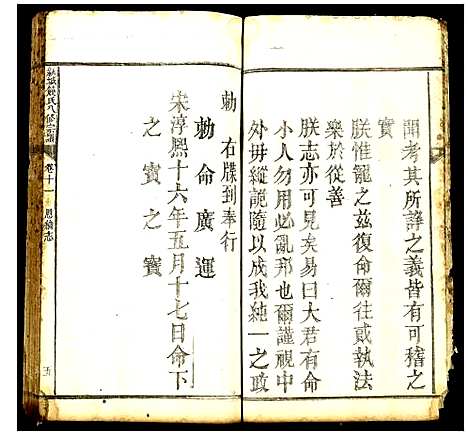 聞考其所諱之義皆有可稽之
實
朕惟寵之茲復命爾往貳執法
樂於從善
朕志亦可見矣易曰大君有命
小人勿用必亂邦也爾謹視中
外毋縱詭隨以成我純一之政
勅 右牒到奉行
勅命廣運
宋淳熙十六年五月十七日命下
之寶之寶
氏八修宗譜 卷十一 恩綸志 五